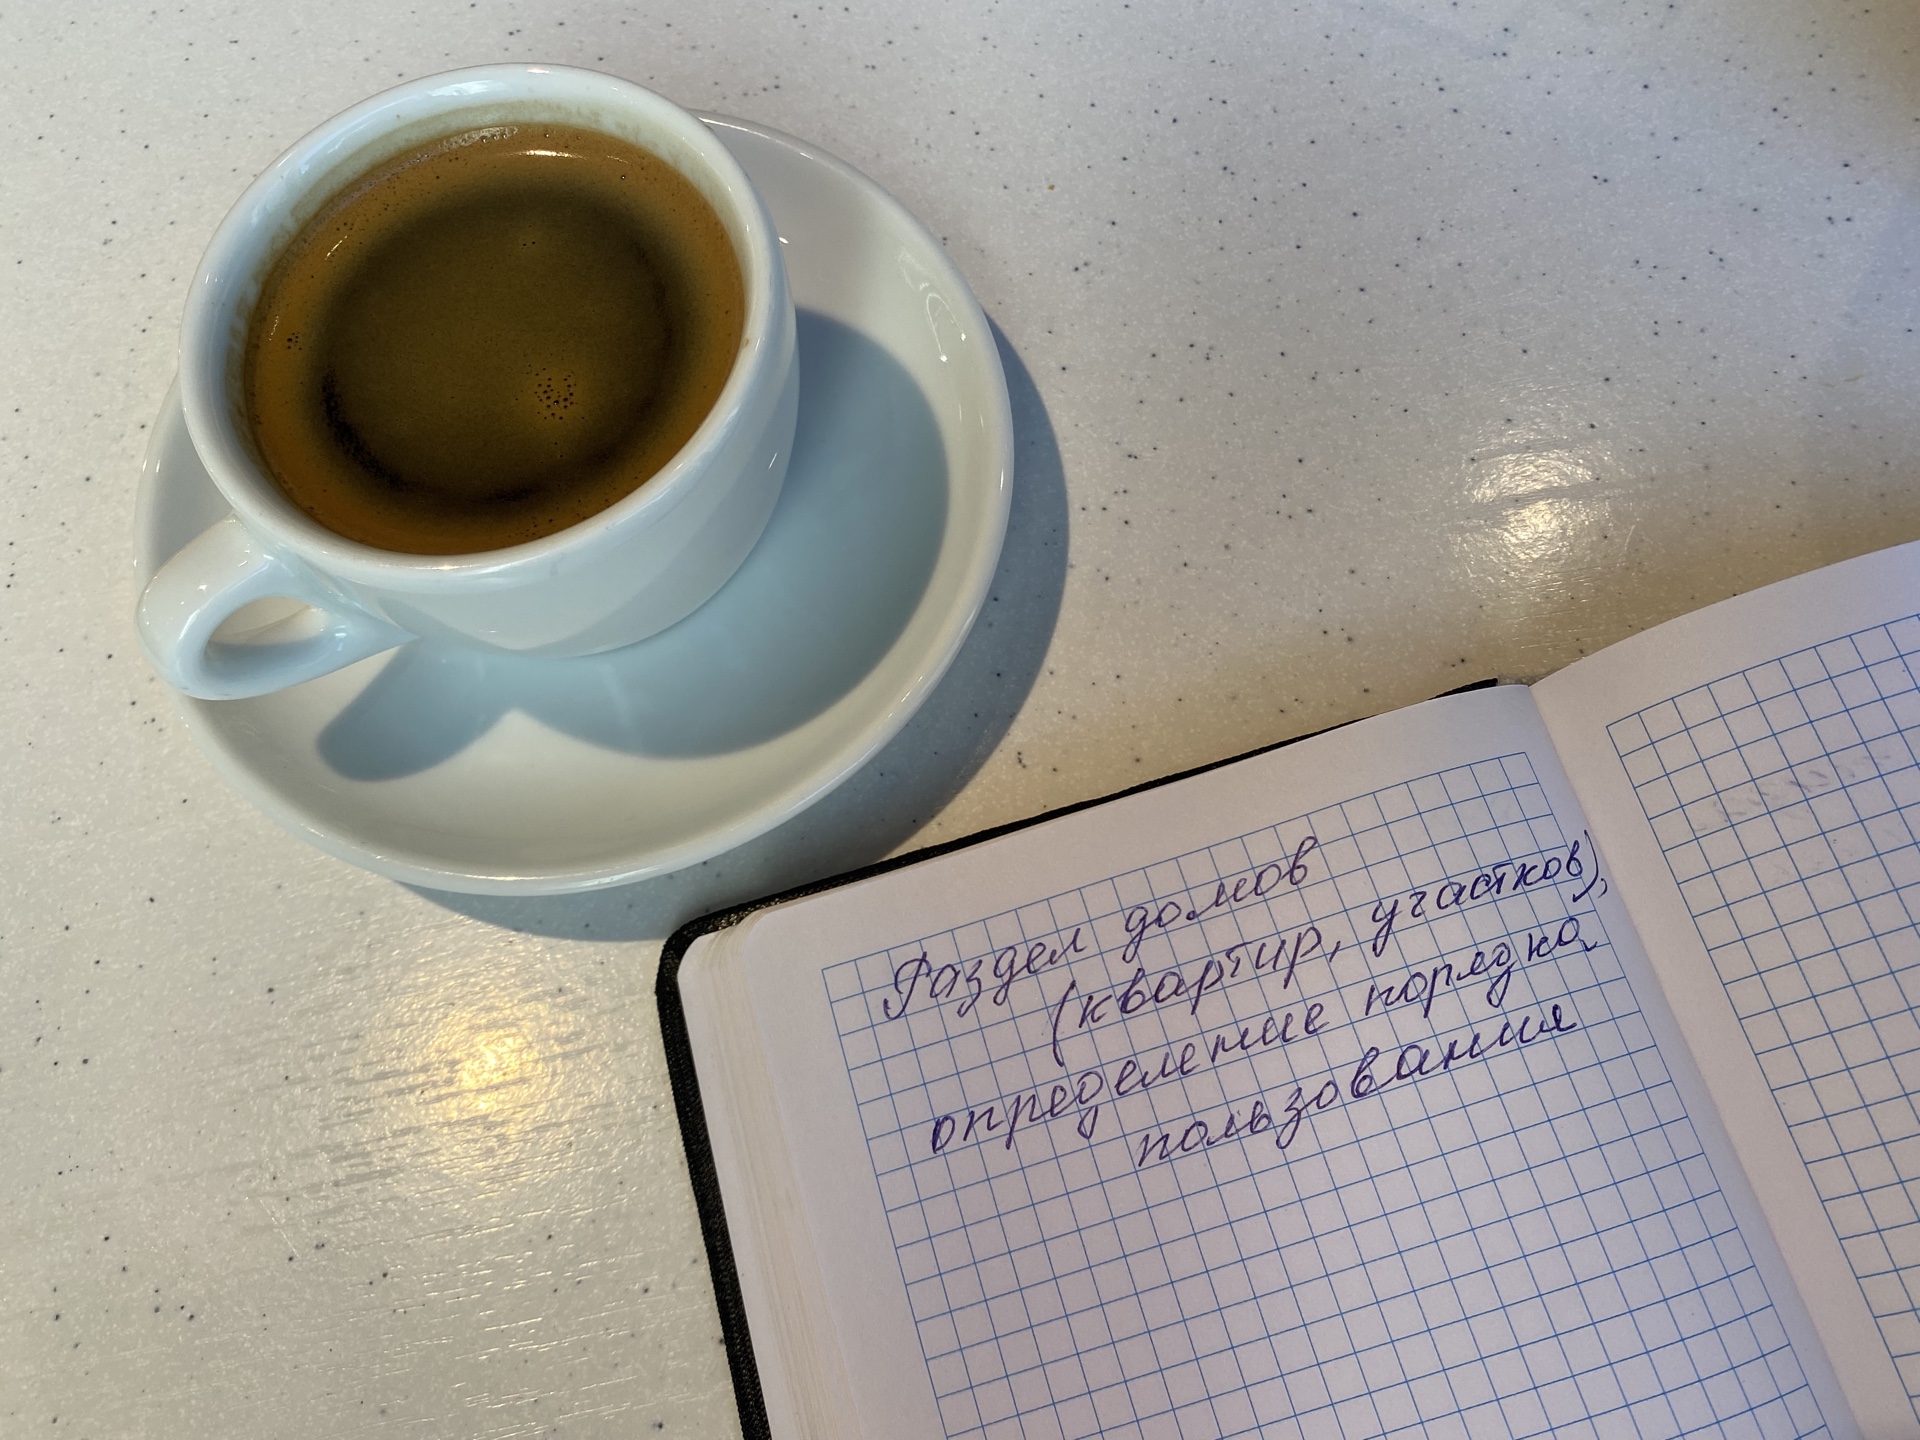 Раздел домов
(квартир, участков),
определение порядка
пользования